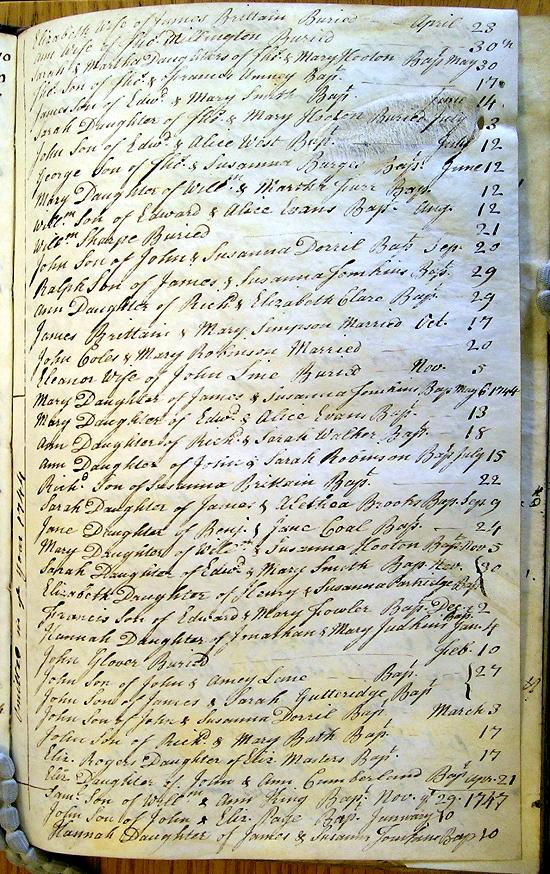 Elizabeth Wife of James Brittain Buried April 23
Ann Wife of Thoˢ. Millington Buried 30th
Sarah & Martha Daughters of Thoˢ. & Mary Hooton Bapᵗ May 30
Thoˢ. Son of Thoˢ. & Frances Amney Bapᵗ. 17
James Son of Edwᵈ. & Mary Smith Bapᵗ. June 14
Sarah Daughter of Thoˢ. & Mary Hooton Buried July 3
John Son of Edwᵈ. & Alice West Bapᵗ. July 12
George Son of Thoˢ. & Susanna Burges Bapᵗ. June 12
Mary Daughter of Willᵐ & Martha Bapᵗ. 12
Willᵐ. Son of Edward & Alice Evans Bapᵗ. Aug. 12
Willᵐ Sharpe Buried 21
John Son of John & Susanna Dorril Bapᵗ Sep. 20
Ralph Son of James & Susanna Tomkins Bapᵗ. 29
Ann Daughter of Richᵈ. & Elizabeth Clare Bapᵗ. 29
James Brittain & Mary Simpson Married Oct. 17
John Coles & Mary Robinson Married 20
Eleanor Wife of John Buried Nov. 5
Mary Daughter of James & Susanna Tomkins Bap May 6 1744
Mary Daughter of Edwᵈ. & Alice Evans Bapᵗ. 13
Ann Daughter of Rich. & Sarah Walker Bapᵗ. 18
Ann Daughter of John & Sarah Robinson Bapᵗ July 15
Richᵈ. Son of Susanna Brittain Bapᵗ. 22
Sarah Daughter of James & Alethea Brooks Bap. Sep. 9
Jane Daughter of Benj. & Jane Coal Bapᵗ. 24
Mary Daughter of Willᵐ & Susanna Hooton Bapᵗ Nov 5
Sarah Daughter of Edwᵈ. & Mary Smith Bap Nov. 30
Elizabeth Daughter of Henry & Susanna Partridge Bapᵗ
Francis Son of Edward & Mary Fowler Bapᵗ. Dec. 2
Hannah Daughter of Jonathan & Mary Judkins Bap. Jan. 4
John Glover Buried Feb. 10
John Son of John & Amey Bapᵗ. 27
John Son of James & Sarah Gutteridge Bapᵗ
John Son of John & Susanna Dorril Bapᵗ. March 3
John Son of Richᵈ. & Mary Bath Bapᵗ. 17
Eliz. Rogers Daughter of Eliz. Masters Bapᵗ. 17
Eliz Daughter of John & Ann Cumberland Bapᵗ Apr. 21
Samˡ. Son of Willᵐ & Ann King Bapᵗ. Nov. yᵉ 29. 1747
John Son of John & Eliz. Page Bap. January 10
Hannah Daughter of James & Susanna Tomkins Bap 10